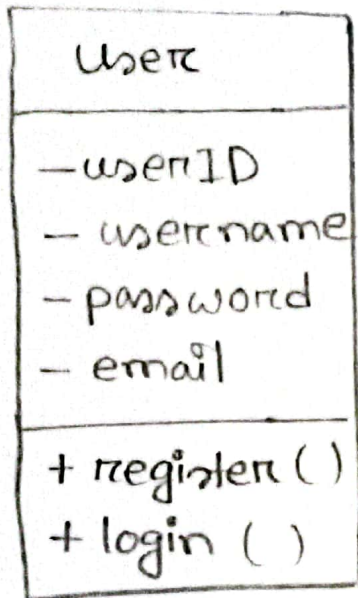 User
- userID
- username
- password
- email
+ register()
+ login ( )